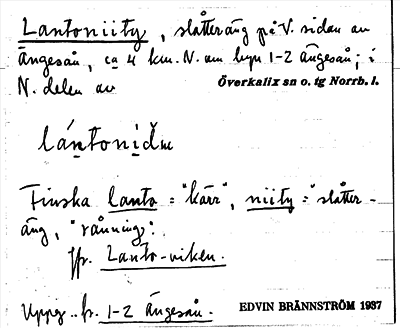 Lantoniity, slåtteräng på V. sidan av
ängesån, ca 4 km. N. om byn 1-2 ängesån; i
N. delen av
Överkalix sn o. tg Norrb. l.
Finska lanto = "kärr", niity = "slåtter-
äng, "rånning".
Jfr. Lanto-viken.
Uppg. fr. 1-2 Ängesån.
EDVIN BRÄNNSTRÖM 1937